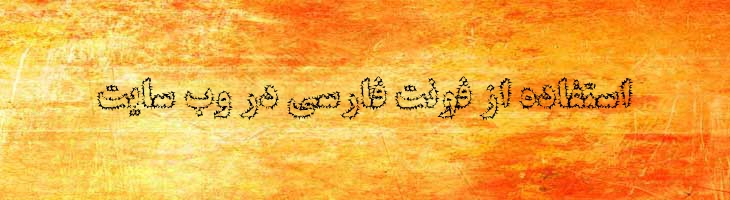 استفاده از فونت فارسی در وب سایت